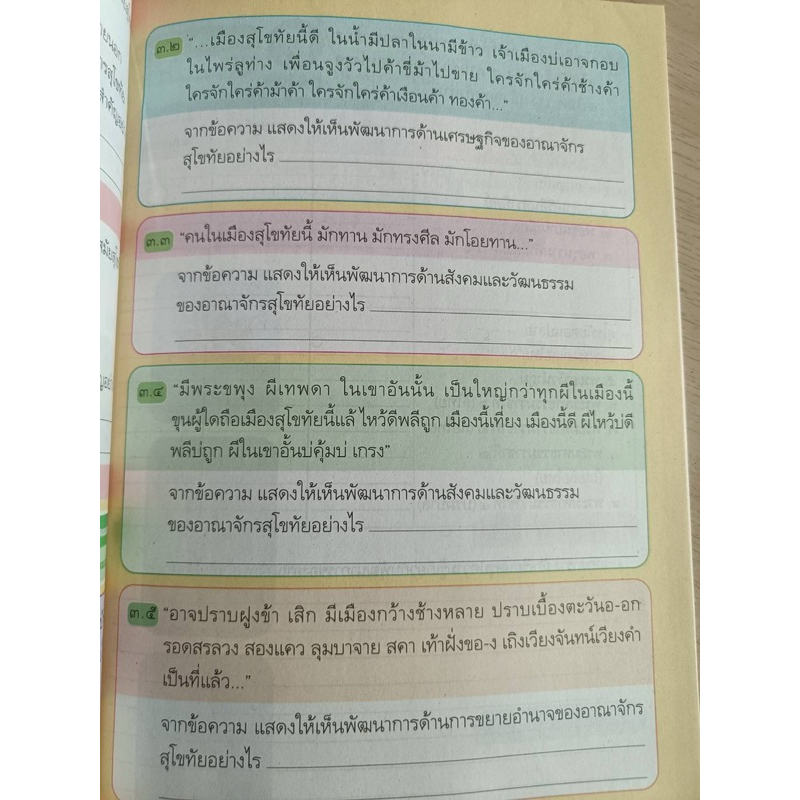 ๓.๒ "...เมืองสุโขทัยนี้ดี ในน้ำมีปลาในนามีข้าว เจ้าเมืองบ่เอาจกอบ
ในไพร่ลูท่าง เพื่อนจูงวัวไปค้าขี่ม้าไปขาย ใครจักใคร่ค้าช้างค้า
ใครจักใคร่ค้าม้าค้า ใครจักใคร่ค้าเงือนค้า ทองค้า..."
จากข้อความ แสดงให้เห็นพัฒนาการด้านเศรษฐกิจของอาณาจักร
สุโขทัยอย่างไร
๓.๓ "คนในเมืองสุโขทัยนี้ มักทาน มักทรงศีล มักโอยทาน..."
จากข้อความ แสดงให้เห็นพัฒนาการด้านสังคมและวัฒนธรรม
ของอาณาจักรสุโขทัยอย่างไร
๓.๔ "มีพระขพุง ผีเทพดา ในเขาอันนั้น เป็นใหญ่กว่าทุกผีในเมืองนี้
ขุนผู้ใดถือเมืองสุโขทัยนี้แล้ ไหว้ดีพลีถูก เมืองนี้เที่ยง เมืองนี้ดี ผีไหว้บ่ดี
พลีบ่ถูก ผีในเขาอั้นบ่คุ้มบ่ เกรง"
จากข้อความ แสดงให้เห็นพัฒนาการด้านสังคมและวัฒนธรรม
ของอาณาจักรสุโขทัยอย่างไร
๓.๕ "อาจปราบฝูงข้า เสิก มีเมืองกว้างช้างหลาย ปราบเบื้องตะวันอ-อก
รอดสรลวง สองแคว ลุมบาจาย สคา เท้าฝั่งขอ-ง เถิงเวียงจันทน์เวียงคำ
เป็นที่แล้ว..."
จากข้อความ แสดงให้เห็นพัฒนาการด้านการขยายอำนาจของอาณาจักร
สุโขทัยอย่างไร